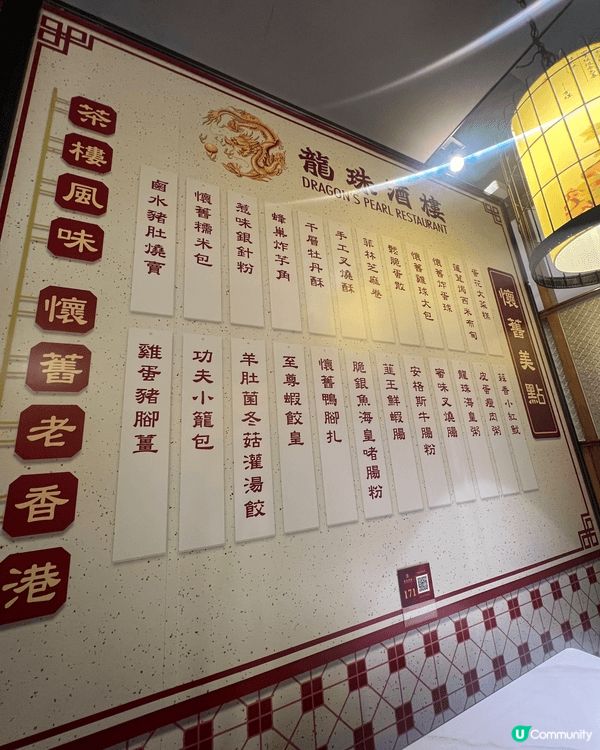 龍珠酒樓
DRAGON'S PEARL RESTAURANT
茶樓風味
懷舊老香港
懷舊美點
鹵水豬肚燒賣
懷舊糯米包
蔥味銀針粉
蜂巢炸芋角
千層牡丹酥
手工叉燒酥
菲林芝麻卷
鬆脆蛋散
懷舊雞球大包
懷舊炸蛋球
蓮茸焗西米布甸
棗花大菜糕
雞蛋豬腳薑
功夫小籠包
羊肚菌冬菇灌湯餃
至尊蝦餃皇
懷舊鴨腳扎
脆銀魚海皇啫腸粉
韮王鮮蝦腸
安格斯牛腸粉
蜜味叉燒腸
龍珠海皇粥
皮蛋瘦肉粥
171
UCommunity